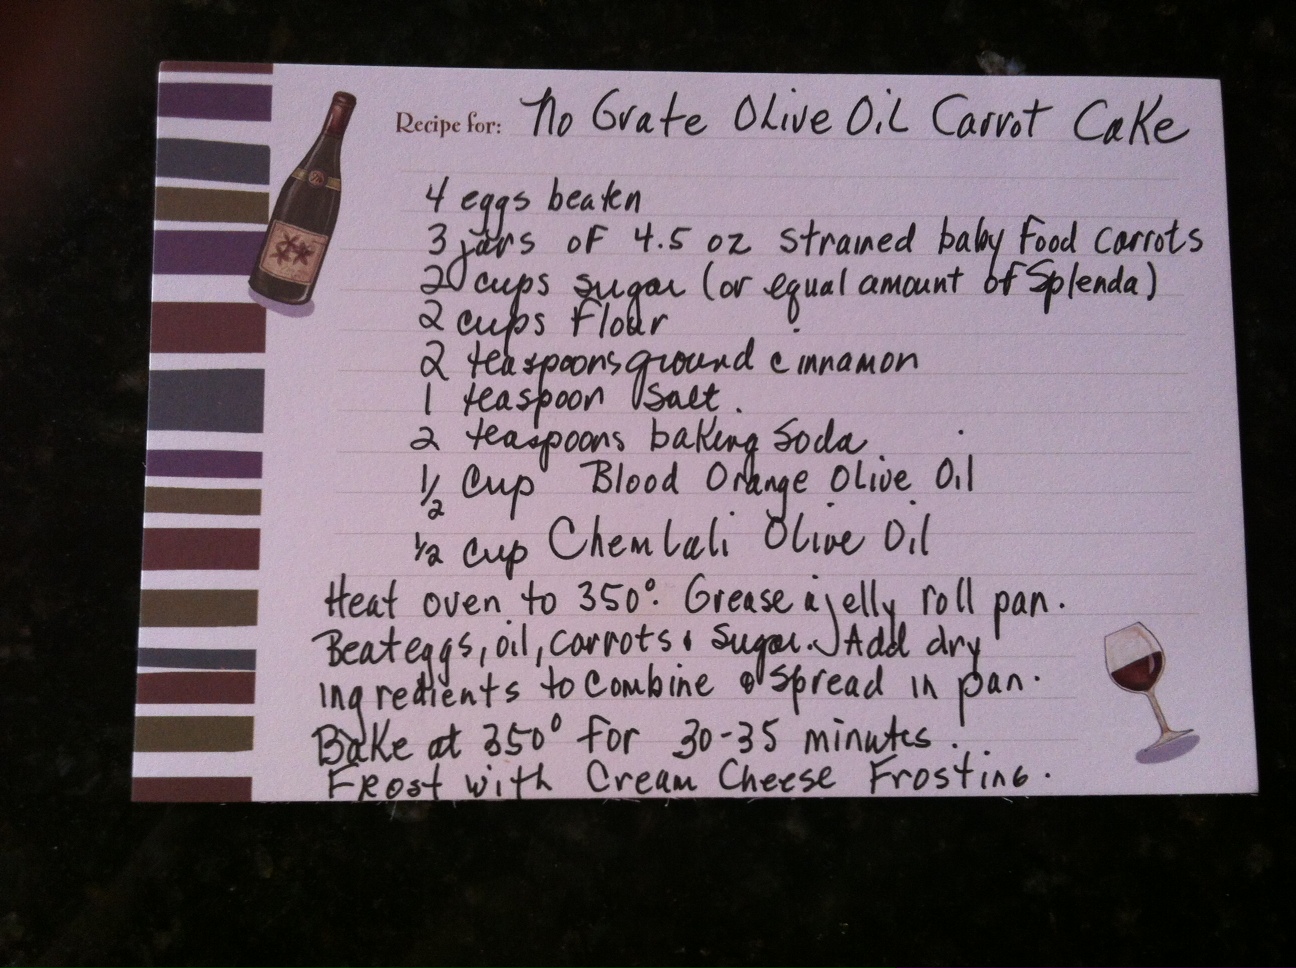 Recipe for: No Grate Olive Oil Carrot Cake
4 eggs beaten
3 jars of 4.5 oz strained baby food carrots
2 cups sugar (or equal amount of Splenda)
2 cups flour
2 teaspoons ground cinnamon
1 teaspoon salt.
2 teaspoons baking soda
1/2 Cup Blood Orange Olive Oil
1/2 cup Chemlali Olive Oil
Heat oven to 350°. Grease a jelly roll pan.
Beat eggs, oil, carrots & sugar. Add dry
ingredients to combine & spread in pan.
Bake at 350° for 30-35 minutes.
Frost with Cream Cheese Frosting.